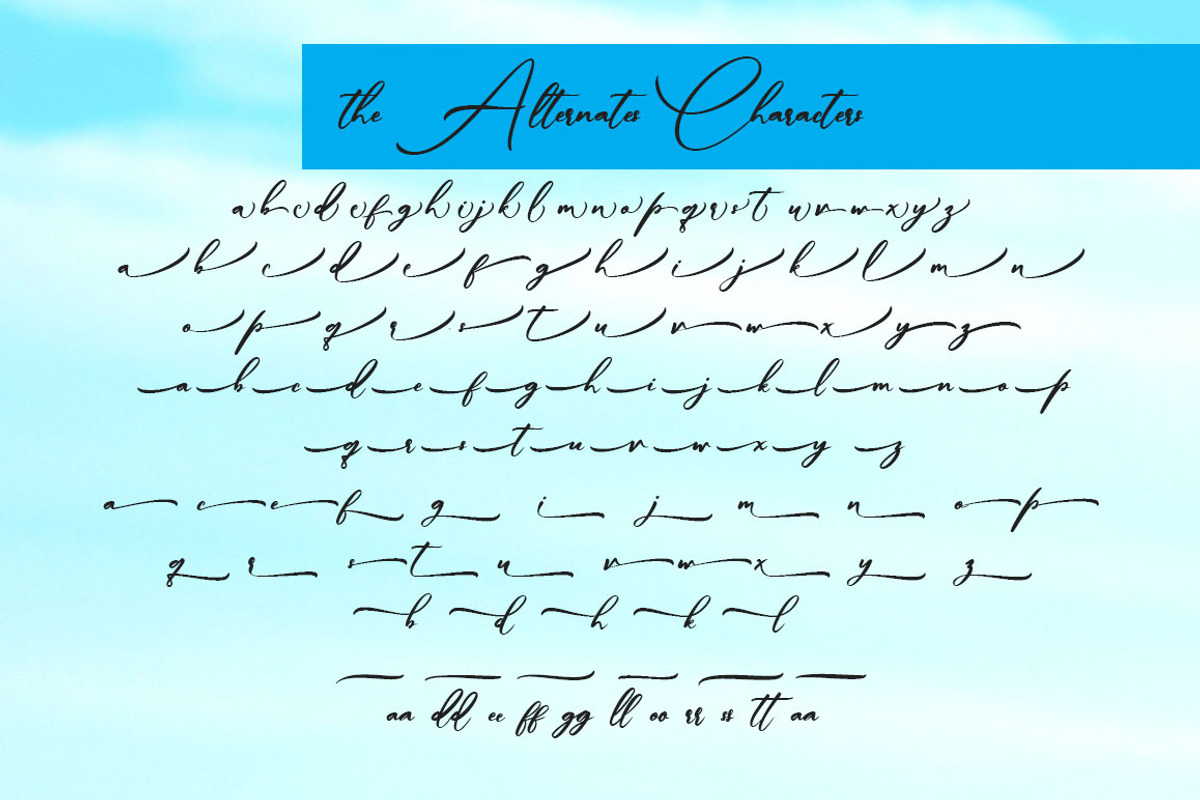 the Alternates Characters
abcd efghijkl mnopqrst uvwxyz
a b c d e f g h i j k l m n
o p q r s t u v w x y z
a b c d e f g h i j k l m n o p
q r s t u v w x y z
a c e f g i j m n o p
q r s t u v w x y z
b d h k l
aa dd ee ff gg ll oo rr ss tt aa